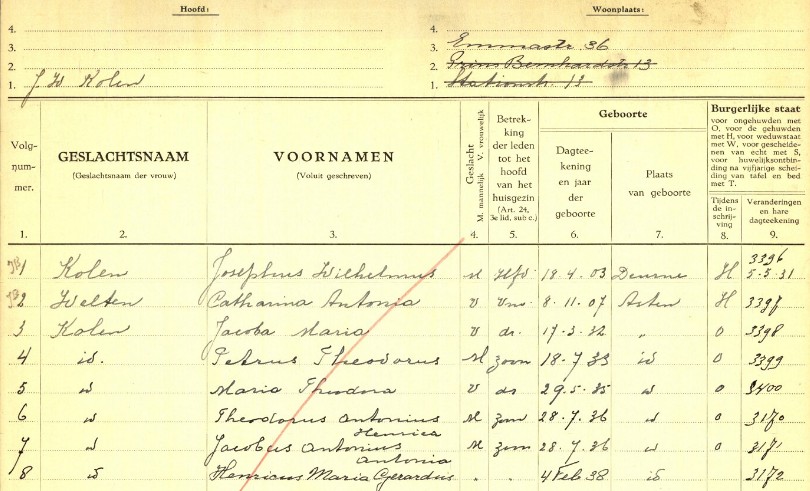 Hoofd: Woonplaats:
4. 4.
3. 3. Emmastr. 36
2. 2. Prins Bernhardstr 13
1. J. W. Kolen 1. Stationstr. 13
Volg-nummer. GESLACHTSNAAM (Geslachtsnaam der vrouw) VOORNAMEN (Voluit geschreven) Geslacht M. mannelijk V. vrouwelijk Betrekking der leden tot het hoofd van het huisgezin (Art. 24, 3e lid, sub c.) Geboorte Dagteekening en jaar der geboorte Plaats van geboorte Burgerlijke staat voor ongehuwden met O, voor de gehuwden met H, voor weduwstaat met W, voor gescheidenen van echt met S, voor huwelijksontbinding na vijfjarige scheiding van tafel en bed met T. Tijdens de inschrijving Veranderingen en hare dagteekening
1. 2. 3. 4. 5. 6. 7. 8. 9.
1 Kolen Josephus Wilhelmus M Hfd 18.4.03 Deurne H 3396 5.5.31
2 Welten Catharina Antonia V Vrw 8.11.07 Asten H 3397
3 Kolen Jacoba Maria V dr. 17.3.32 " O 3398
4 id. Petrus Theodorus M zoon 18.7.33 id O 3399
5 id Maria Theodora V dr 29.5.35 id O 3400
6 id Theodorus Antonius M zoon 28.7.36 id O 3170
Henrica
7 id Jacobus Antonius M zoon 28.7.36 id O 3171
Antonia
8 id Henricus Maria Gerardus " " 4 Feb 38 id O 3172